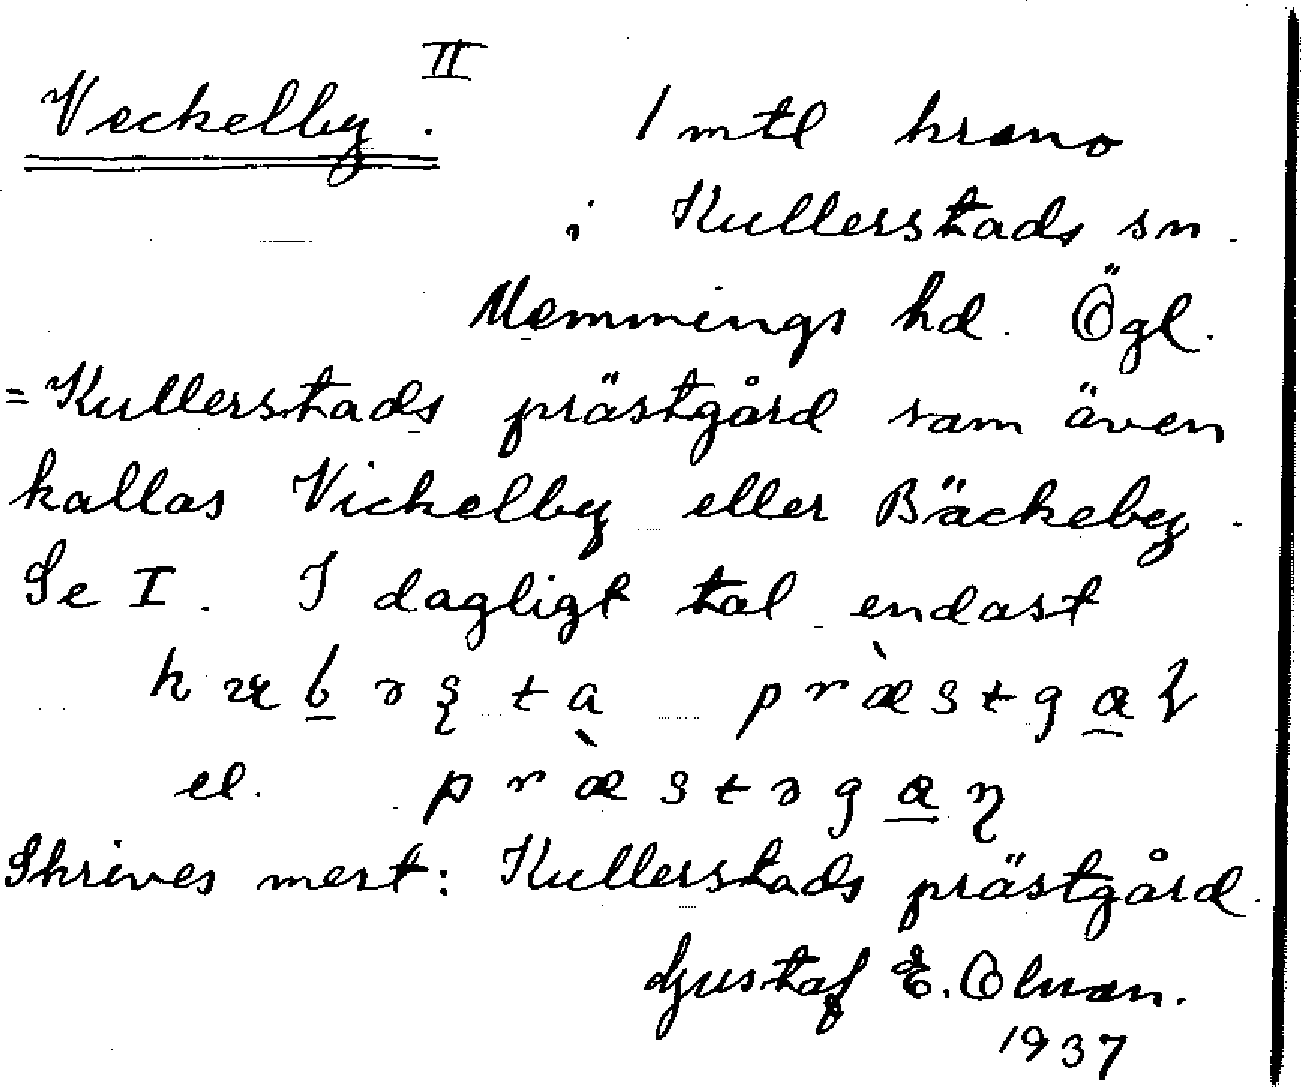 Veckelby. II 1 mtl krono
i Kullerstads sn.
Memmings hd. Ögl.
= Kullerstads prästgård som även
kallas Vickelby eller Bäckeby.
Se I. I dagligt tal endast
el.
Skrives mest: Kullerstads prästgård.
Gustaf E. Olman.
1937